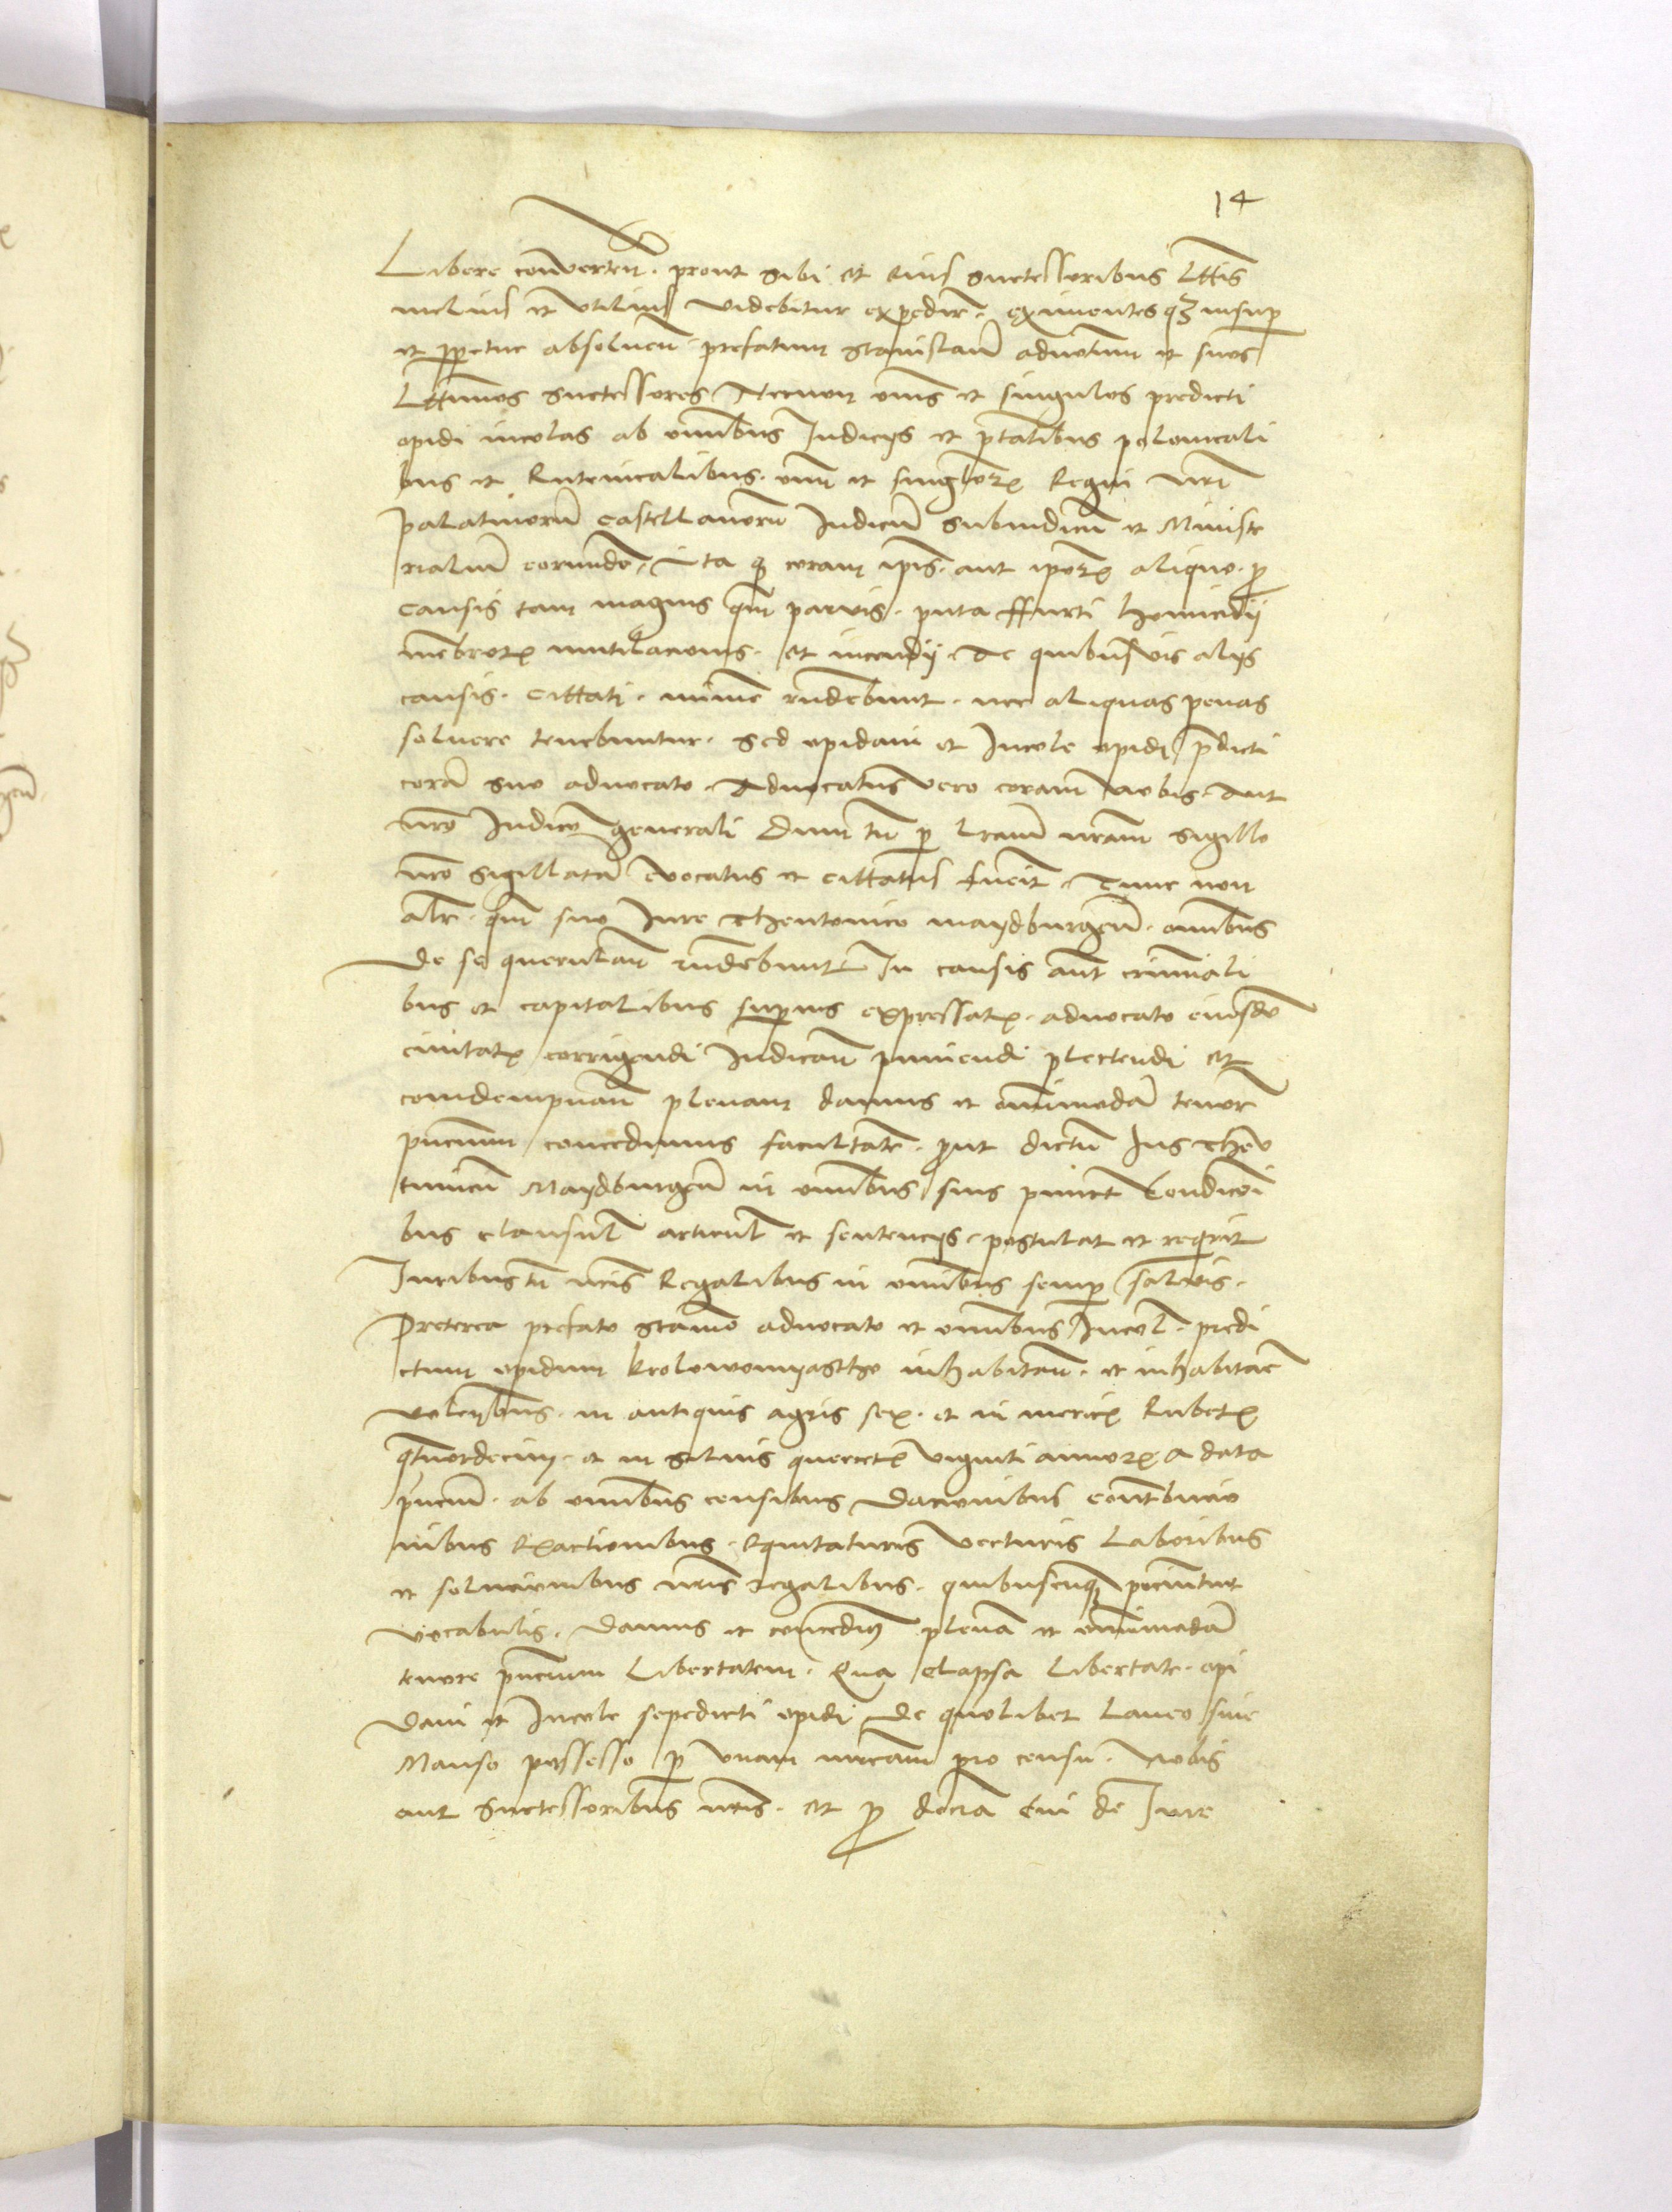 14
Libere convertend. prout sibi et eius successoribus lttis
melius et utilius videbitur expedire. eximentesqz insup
et ppetue absolven. prefatum Stanislaum advocatum et suos
Lttimos successores Necnon oms et singulos predicti
opidi incolas ab omibus Iudicijs et ptatibus polonicali
bus et Rutenicalibus. omi et singlorz Regni nri
palatinorum castellanorum Iudicum subiudicum et Ministe
rialium eorundem, Ita q coram ipis. aut iporz aliquo. p
causis tam magnis qm parvis. puta ffurti homicidij
membrorz mutilacionis. et incendij. Ac quibusvis alijs
causis. cittati. minime rndebunt. nec aliquas penas
solvere tenebuntur. Sed opidani et Incole opidi pdicti
coram suo advocato. Advocatus vero coram nobis. Aut
nro Iudicio generali Dum tn p lram nram sigillo
nro sigillatam evocatus et cittatus fuerit. Tunc non
alr. qm suo Iure Theutonico maydburgen. omibus
De se querulan rndebunt In causis aut criminali
bus et capitalibus superius expressatz. advocato eiusdem
civitatz corrigendi Iudicandi puniendi plectendi et
condempnandi plenam damus et omnimodam tenore
pncium concedimus facultatem. prout dictum Ius Theu
tunicum Maydburgen in omibus suis punct Condicioni
bus clausul articul et sentencijs. postulat et requirit
Iuribus tn nris Regalibus in omibus semp salvis.
Preterea prefato Stanislao advocato et omibus Incol. predi
ctum opidum krolowomyastho inhabitan. et inhabitare
volentibus. in antiquis agris sex. et in mericz Rubetz
qtuordecim. et in silvis quercetz viginti annorz a data
pncium. ab omibus censibus Dacionibus contribucio
nibus Exactionibus. Equitaturis Vecturis Laboribus
et solucionibus nris regalibus. quibuscunq nominentur
vocabulis. Damus et concedimus plenam et omnimodam
tenore pncium Libertatem. Qua elapsa Libertate. opi
Dani et Incole sepedicti opidi De quolibet Laneo sive
Manso possesso p Unam mrcam pro censu. Nobis
aut successoribus nris. et p decima cui de Iure